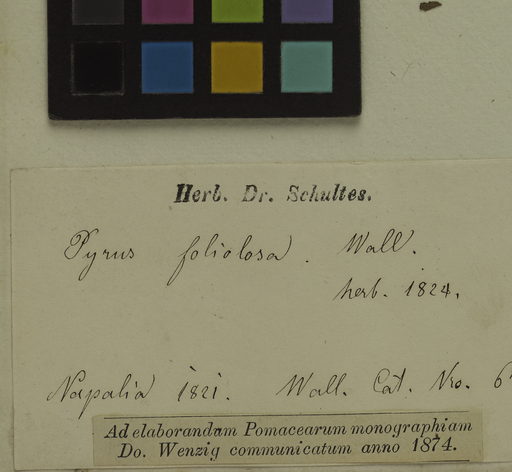 Herb. Dr. Schultes.
Pyrus foliolosa. Wall.
herb. 1824.
Napalia 1821. Wall. Cat. Nro. 6
Ad elaborandam Pomacearum monographiam
Do. Wenzig communicatum anno 1874.